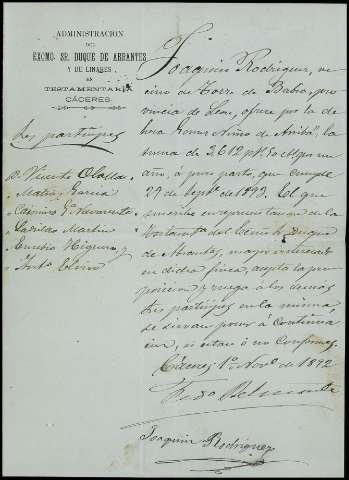 ADMINISTRACION
DEL
EXCMO. SR. DUQUE DE ABRANTES
Y DE LINARES
EN
TESTAMENTARIA
CÁCERES
Los partícipes
D. Vicente Olalla
Matías García
Casimiro Gª Navarrete
Ladislao Martín
Eusebio Higuera y
Antº
Joaquín Rodríguez, ve
cino de Torre de Babia, pro
vincia de Leon, ofrece por la de
hesa
suma de 2.612 pts 50
á puro pasto, que cumple
29 de Sepbre de 1893. El que
suscribe en representacion de la
Testamtª del Excmo Sr. Duque
de Abrantes, mayor interesado
en dicha finca, acepta la pro
posicion y ruega á los demás
tres partícipes en la misma,
se sirvan poner á continua
cion, si estan ó no conformes.
Cáceres 1º Novº de 1892
Fedº Belmonte
Joaquin Rodriguez